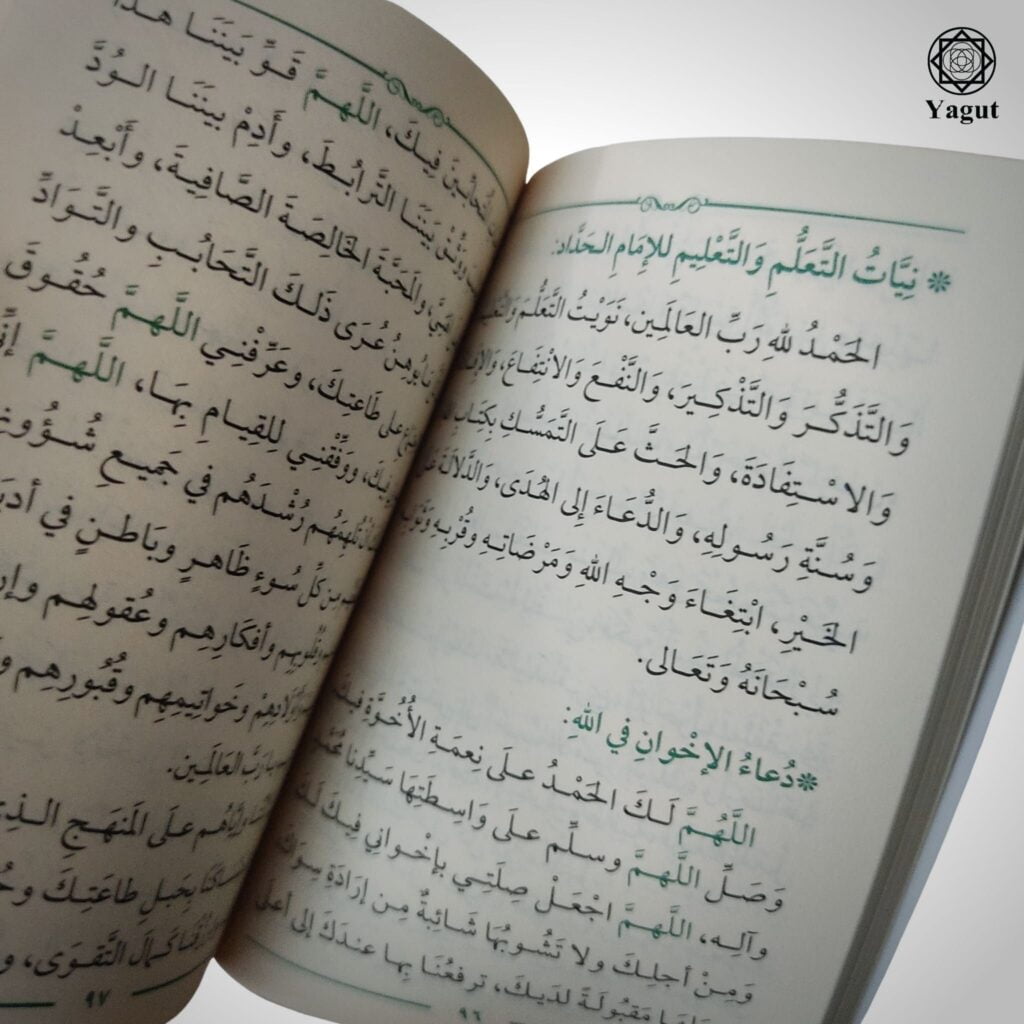 Yagut
❋ نِيَّاتُ التَّعَلُّمِ وَالتَّعْلِيمِ للإِمَامِ الحَدَّاد:
الحَمْدُ للهِ رَبِّ العَالَمِين، نَوَيْتُ التَّعَلُّمَ
وَالتَّذَكُّرَ وَالتَّذْكِيرَ، وَالنَّفْعَ وَالانْتِفَاعَ،
وَالاسْتِفَادَةَ، وَالحَثَّ عَلَى التَّمَسُّكِ بِكِتَابِ
وَسُنَّةِ رَسُولِهِ، وَالدُّعَاءَ إِلى الهُدَى، وَالدَّلَالَةَ
الخَيْرِ، ابْتِغَاءَ وَجْهِ اللهِ وَمَرْضَاتِهِ وقُرْبِهِ
سُبْحَانَهُ وَتَعَالى.
❋ دُعاءُ الإخْوانِ في اللهِ:
اللَّهُمَّ لَكَ الحَمْدُ علَى نِعمَةِ الأُخُوَّةِ فيكَ
وَصَلِّ اللَّهمَّ وسلِّم علَى وَاسِطَتِهَا سَيِّدِنا
وآلِه، اللَّهمَّ اجْعَلْ صِلَتِي بإخْوانِي فِيكَ لَكَ
وَمِنْ أجلِكَ ولا تَشُوبُهَا شَائِبةٌ مِن إرَادَةِ سِوَاكَ
مَقبُولَةً لَدَيكَ، ترفَعُنَا بِها عندَكَ إلى أعلَى
٩٦
فِيكَ، اللَّهمَّ قَوِّ بَينَنَا هذا
بَينَنَا التَّرابُطَ، وأَدِمْ بينَنَا الوُدَّ
والمَحَبَّةَ الخَالِصَةَ الصَّافِيةَ، وأَبْعِدْ
عُرَى ذَلكَ التَّحَابُبِ والتَّوَادِّ
علَى طَاعتِكَ، وعَرِّفْنِي اللَّهمَّ حُقُوقَ
ووَفِّقْنِي لِلقِيامِ بِهَا، اللَّهمَّ
رُشْدَهُم في جَميعِ شُؤُونِهِم
مِن كُلِّ سُوءٍ ظَاهرٍ وبَاطنٍ في
وأفكَارِهِم وعُقولِهم
وخَواتِيمِهِم وقُبُورِهِم
يا رَبَّ العَالَمِين.
علَى المَنهَجِ الذِي
بِحَبلِ طاعَتِكَ
كَمالَ التَّقوَى،
٩٧